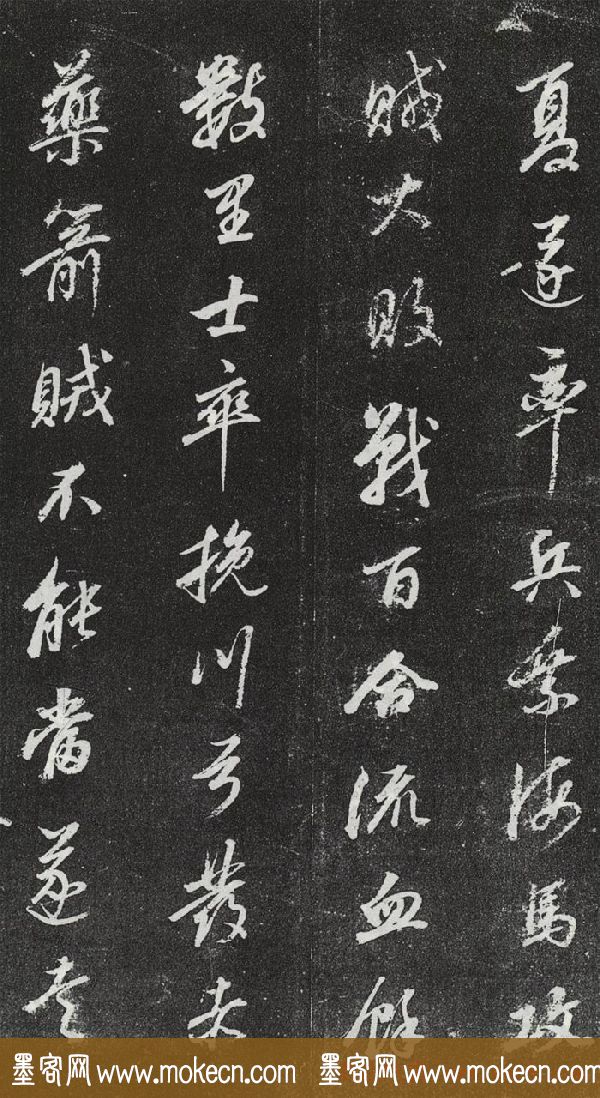 夏遂率兵乘海馬攻
賊大敗戰百合流血餘
數里士卒挽川弓發
藥箭賊不能當遂走
墨客网 www.mokecn.com 墨客网 www.mokecn.com